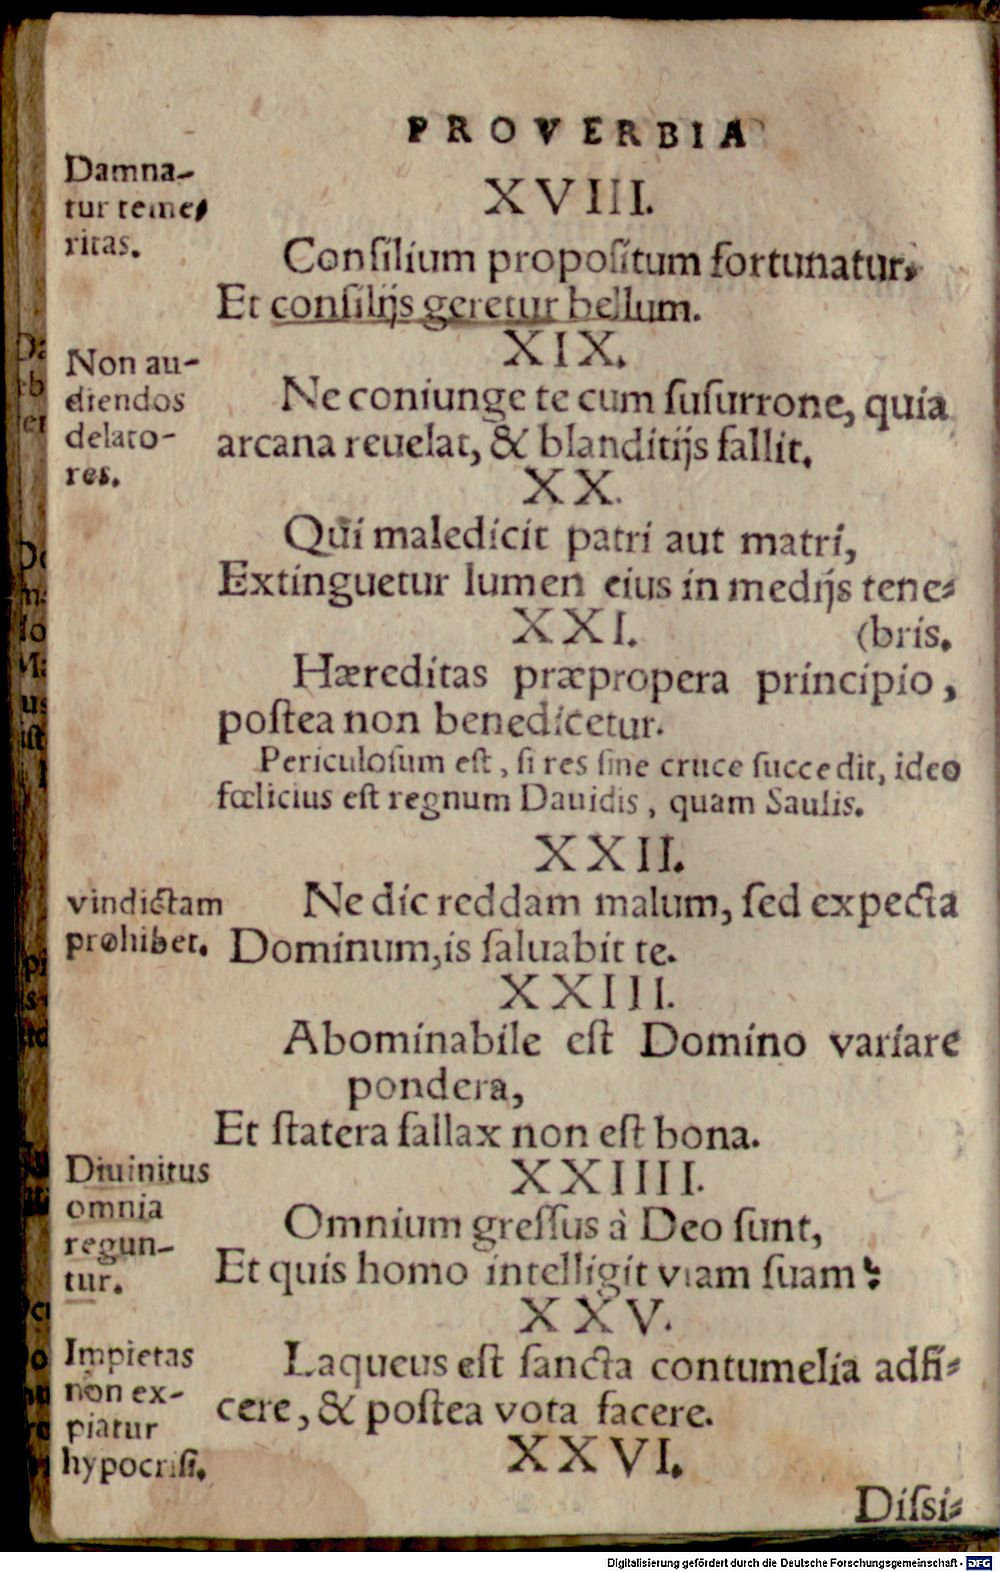 PROVERBIA
Damna-
tur teme-
ritas.
XVIII.
Conſilium propoſitum fortunatur.
Et conſilijs geretur bellum.
Non au-
diendos
delato-
res.
XIX.
Ne coniunge te cum ſuſurrone, quia
arcana reuelat, & blanditijs fallit.
XX.
Qui maledicit patri aut matri,
Extinguetur lumen eius in medijs tene-
(bris.
XXI.
Hæreditas præpropera principio,
poſtea non benedicetur.
Periculoſum eſt, ſi res ſine cruce ſuccedit, ideo
fœlicius eſt regnum Dauidis, quam Saulis.
XXII.
vindictam
prohibet.
Ne dic reddam malum, ſed expecta
Dominum, is ſaluabit te.
XXIII.
Abominabile eſt Domino variare
pondera,
Et ſtatera fallax non eſt bona.
Diuinitus
omnia
regun-
tur.
XXIIII.
Omnium greſſus à Deo ſunt,
Et quis homo intelligit viam ſuam?
XXV.
Impietas
non ex-
piatur
hypocriſi.
Laqueus eſt ſancta contumelia adfi-
cere, & poſtea vota facere.
XXVI.
Diſsi-
Digitalisierung gefördert durch die Deutsche Forschungsgemeinschaft - DFG